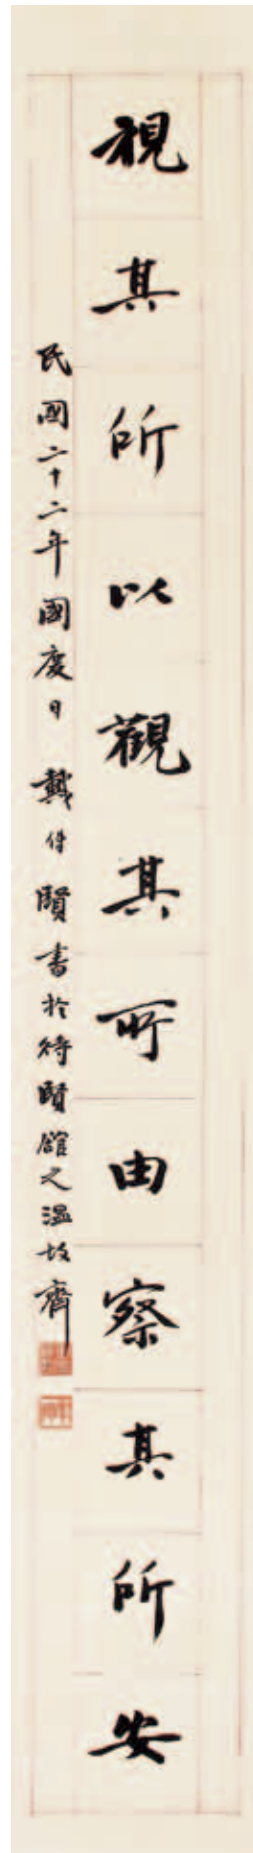 視其所以觀其所由察其所安
民國二十二年國慶日 戴付賢書於待賢館之溫故齋